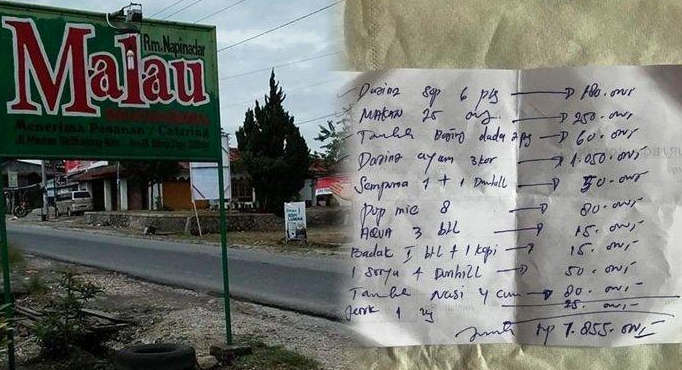 Rm. Napinadar
Malau
Menerima Pesanan / Catering
Daging sop 6 ptg 180.000
MAKAN 25 org 250.000
Tambah Daging dada 2 ptg 60.000
Daging ayam 3 kor 1.050.000
Sempurna 1 + 1 Dunhill 50.000
pop mie 8 80.000
AQUA 3 btl 15.000
Badak 1 btl + 1 kopi 15.000
1 Surya + Dunhill 50.000
Tambah Nasi 4 cm 80.000
Jeruk 1 kg 25.000
Rp 1.855.000